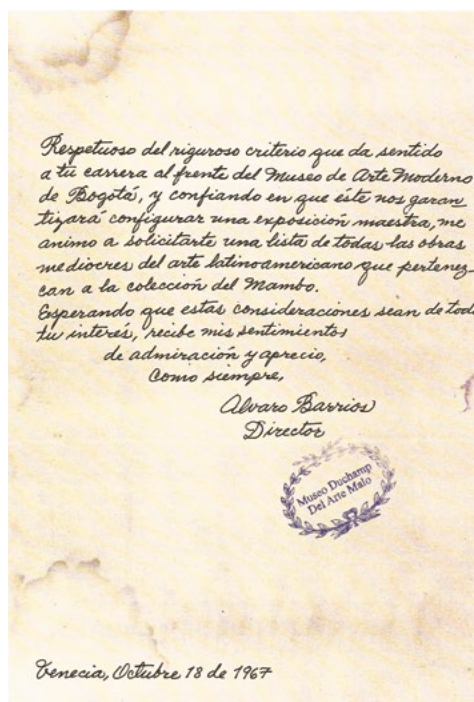 Respetuoso del riguroso criterio que da sentido
a tu carrera al frente del Museo de Arte Moderno
de Bogotá, y confiando en que éste nos garan
tizará configurar una exposición maestra, me
animo a solicitarte una lista de todas las obras
mediocres del arte latinoamericano que pertenez-
can a la colección del Mambo.
Esperando que estas consideraciones sean de todo
tu interés, recibe mis sentimientos
de admiración y aprecio,
Como siempre,
Alvaro Barrios
Director
Museo Duchamp
Del Arte Malo
Venecia, Octubre 18 de 1967